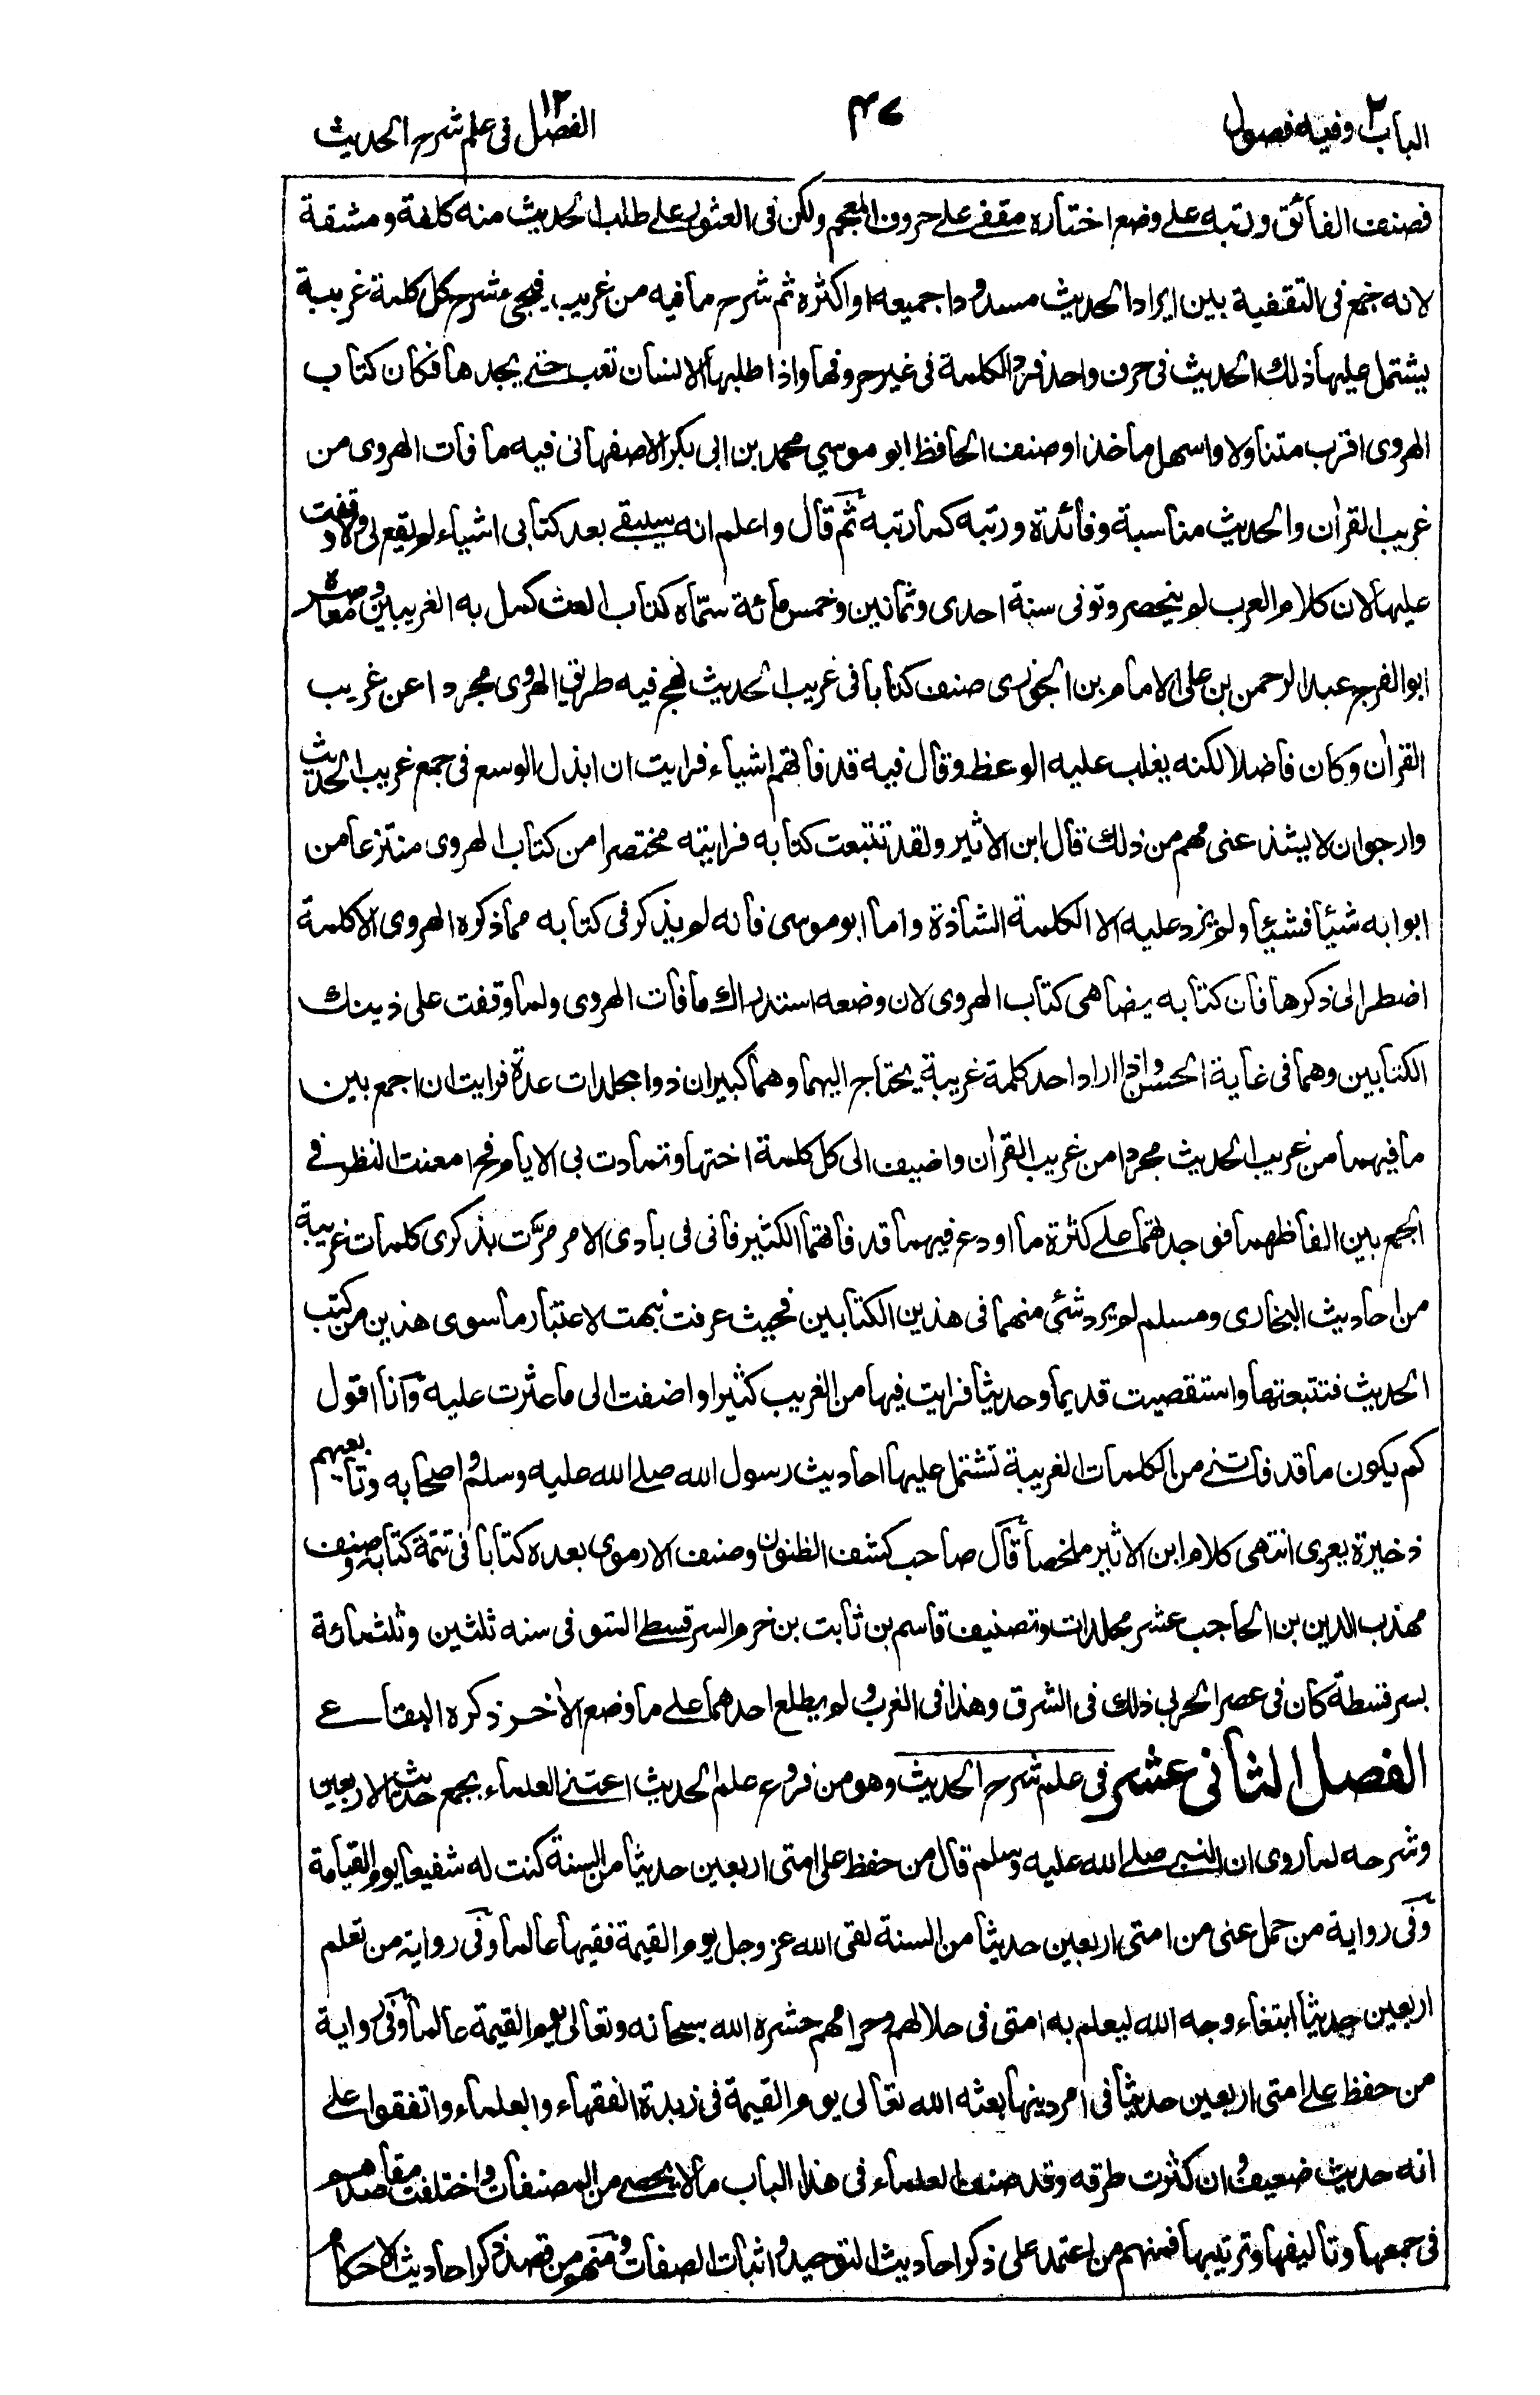 الباب ٢ وفيه فصول
٤٧
الفصل ١٢ فى علم شرح الحديث
فصنف الفائق ورتبه على وضع اختاره مقفى على حروف المعجم ولكن فى العثور على طلب الحديث منه كلفة ومشقة
لانه جمع فى التقفية بين ايراد الحديث مسرودا جميعه او اكثره ثم شرح ما فيه من غريب فيجىء شرح كل كلمة غريبة
يشتمل عليها ذلك الحديث فى حرف واحد فترد الكلمة فى غير حروفها واذا طلبها الانسان تعب حتى يجدها فكان كتاب
الهروى اقرب متناولا واسهل ماخذا وصنف الحافظ ابو موسى محمد بن ابى بكر الاصفهانى فيه ما فات الهروى من
غريب القرأن والحديث مناسبة وفائدة ورتبه كما رتبه ثم قال واعلم انه سيبقى بعد كتابى اشياء لم يقع لى ولا وقفت
عليها لان كلام العرب لم ينحصر وتوفى سنة احدى وثمانين وخمس مائة سماه كتاب المغيث كمل به الغريبين ومعاصره
ابو الفرج عبد الرحمن بن على الامام بن الجوزى صنف كتابا فى غريب الحديث نهج فيه طريق الهروى مجردا عن غريب
القرأن وكان فاضلا لكنه يغلب عليه الوعظ وقال فيه قد فاتهم اشياء فرايت ان ابذل الوسع فى جمع غريب الحديث
وارجو ان لا يشذ عنى مهم من ذلك قال ابن الاثير ولقد تتبعت كتابه فرايته مختصرا من كتاب الهروى منتزعا من
ابوابه شيئا فشيئا ولم يزد عليه الا الكلمة الشاذة واما ابو موسى فانه لم يذكر فى كتابه مما ذكره الهروى الا كلمة
اضطر الى ذكرها فان كتابه يضاهى كتاب الهروى لان وضعه استدراك ما فات الهروى ولما وقفت على ذينك
الكتابين وهما فى غاية الحسن واذا اراد احد كلمة غريبة يحتاج اليهما وهما كبيران ذوا مجلدات عدة فرايت ان اجمع بين
ما فيهما من غريب الحديث مجردا من غريب القرأن واضيف الى كل كلمة اختها وتمادت بى الايام فح امعنت النظر فى
الجمع بين الفاظهما فوجدتهما على كثرة ما اودع فيهما قد فاتهما الكثير فانى فى بادى الامر مرّت بذكرى كلمات غريبة
من احاديث البخارى ومسلم لم يرد شئ منهما فى هذين الكتابين فحيث عرفت نبهت لاعتبار ما سوى هذين من كتب
الحديث فتتبعتها واستقصيت قديما وحديثا فرايت فيها من الغريب كثيرا واضفت الى ما عثرت عليه وانا اقول
كم يكون ما قد فاتنى من الكلمات الغريبة تشتمل عليها احاديث رسول الله صلى الله عليه وسلم واصحابه وتابعيهم
ذخيرة بعرى انتهى كلام ابن الاثير ملخصا قال صاحب كشف الظنون وصنف الارموى بعده كتابا فى تتمة كتابه وصنف
مهذب الدين بن الحاجب عشر مجلدات وتصنيف قاسم بن ثابت بن خرم السرقسطى المتوفى سنه ثلثين وثلثمائة
بسرقسطة كان فى عصر الحربى ذلك فى الشرق وهذا فى الغرب ولم يطلع احدهما على ما وضع الأخر ذكره البقاعى
الفصل الثانى عشر فى علم شرح الحديث وهو من فروع علم الحديث اعتنى العلماء بجمع حديث الاربعين
وشرحه لما روى ان النبى صلى الله عليه وسلم قال من حفظ على امتى اربعين حديثا من السنة كنت له شفيعا يوم القيامة
وفى رواية من حمل عنى من امتى اربعين حديثا من السنة لقى الله عز وجل يوم القيمة فقيها عالما وفى رواية من تعلم
اربعين حديثا ابتغاء وجه الله ليعلم به امتى فى حلالهم وحرامهم حشره الله سبحانه وتعالى يوم القيمة عالما وفى رواية
من حفظ على امتى اربعين حديثا فى امر دينها بعثه الله تعالى يوم القيمة فى زبدة الفقهاء والعلماء واتفقوا على
انه حديث ضعيف وان كثرت طرقه وقد صنف العلماء فى هذا الباب ما لا يحصى من المصنفات واختلفت مقاصدهم
فى جمعها وتاليفها وترتيبها فمنهم من اعتمد على ذكر احاديث التوحيد واثبات الصفات ومنهم من قصد ذكر احاديث الاحكام